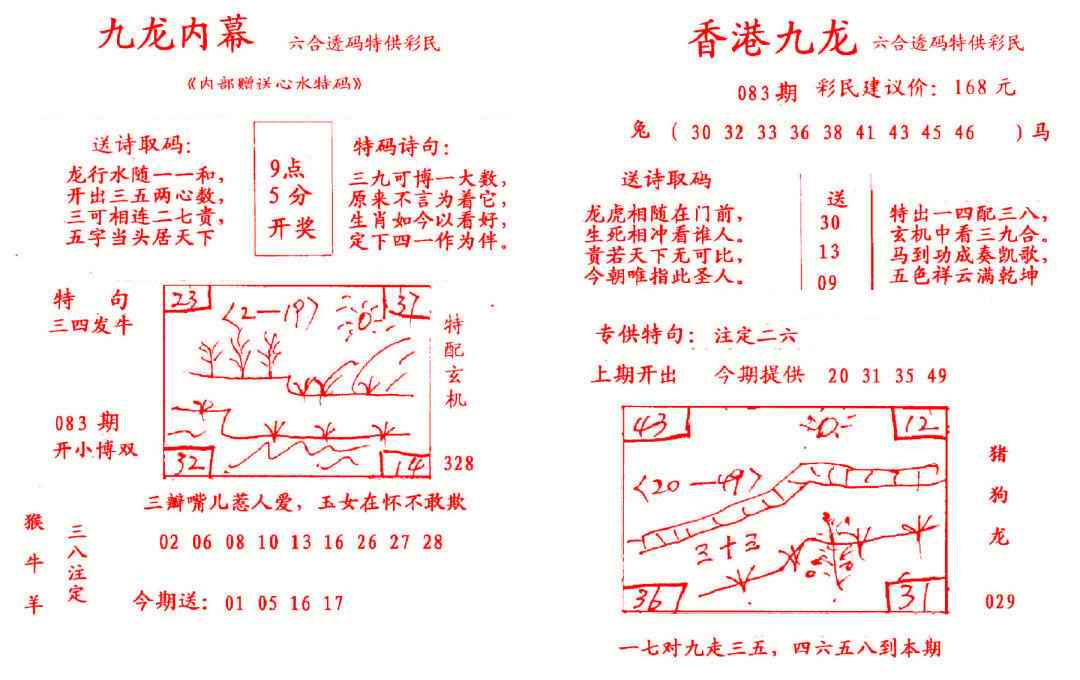 九龙内幕 六合透码特供彩民
《内部赠送心水特码》
送诗取码：
龙行水随一一和，
开出三五两心数，
三可相连二七贵，
五字当头居天下
9点
5分
开奖
特码诗句：
三九可博一大数，
原来不言为着它，
生肖如今以看好，
定下四一作为伴。
特 句
三四发牛
083期
开小博双
23
〈2—19〉
37
32
14
特配玄机
328
三瓣嘴儿惹人爱，玉女在怀不敢欺
猴牛羊
三八注定
02 06 08 10 13 16 26 27 28
今期送：01 05 16 17
香港九龙 六合透码特供彩民
083期 彩民建议价：168元
兔（30 32 33 36 38 41 43 45 46 ）马
送诗取码
龙虎相随在门前，
生死相冲看谁人。
贵若天下无可比，
今朝唯指此圣人。
送
30
13
09
特出一四配三八，
玄机中看三九合。
马到功成奏凯歌，
五色祥云满乾坤
专供特句：注定二六
上期开出 今期提供 20 31 35 49
43
12
〈20—49〉
三十三
36
31
猪
狗
龙
029
一七对九走三五，四六五八到本期